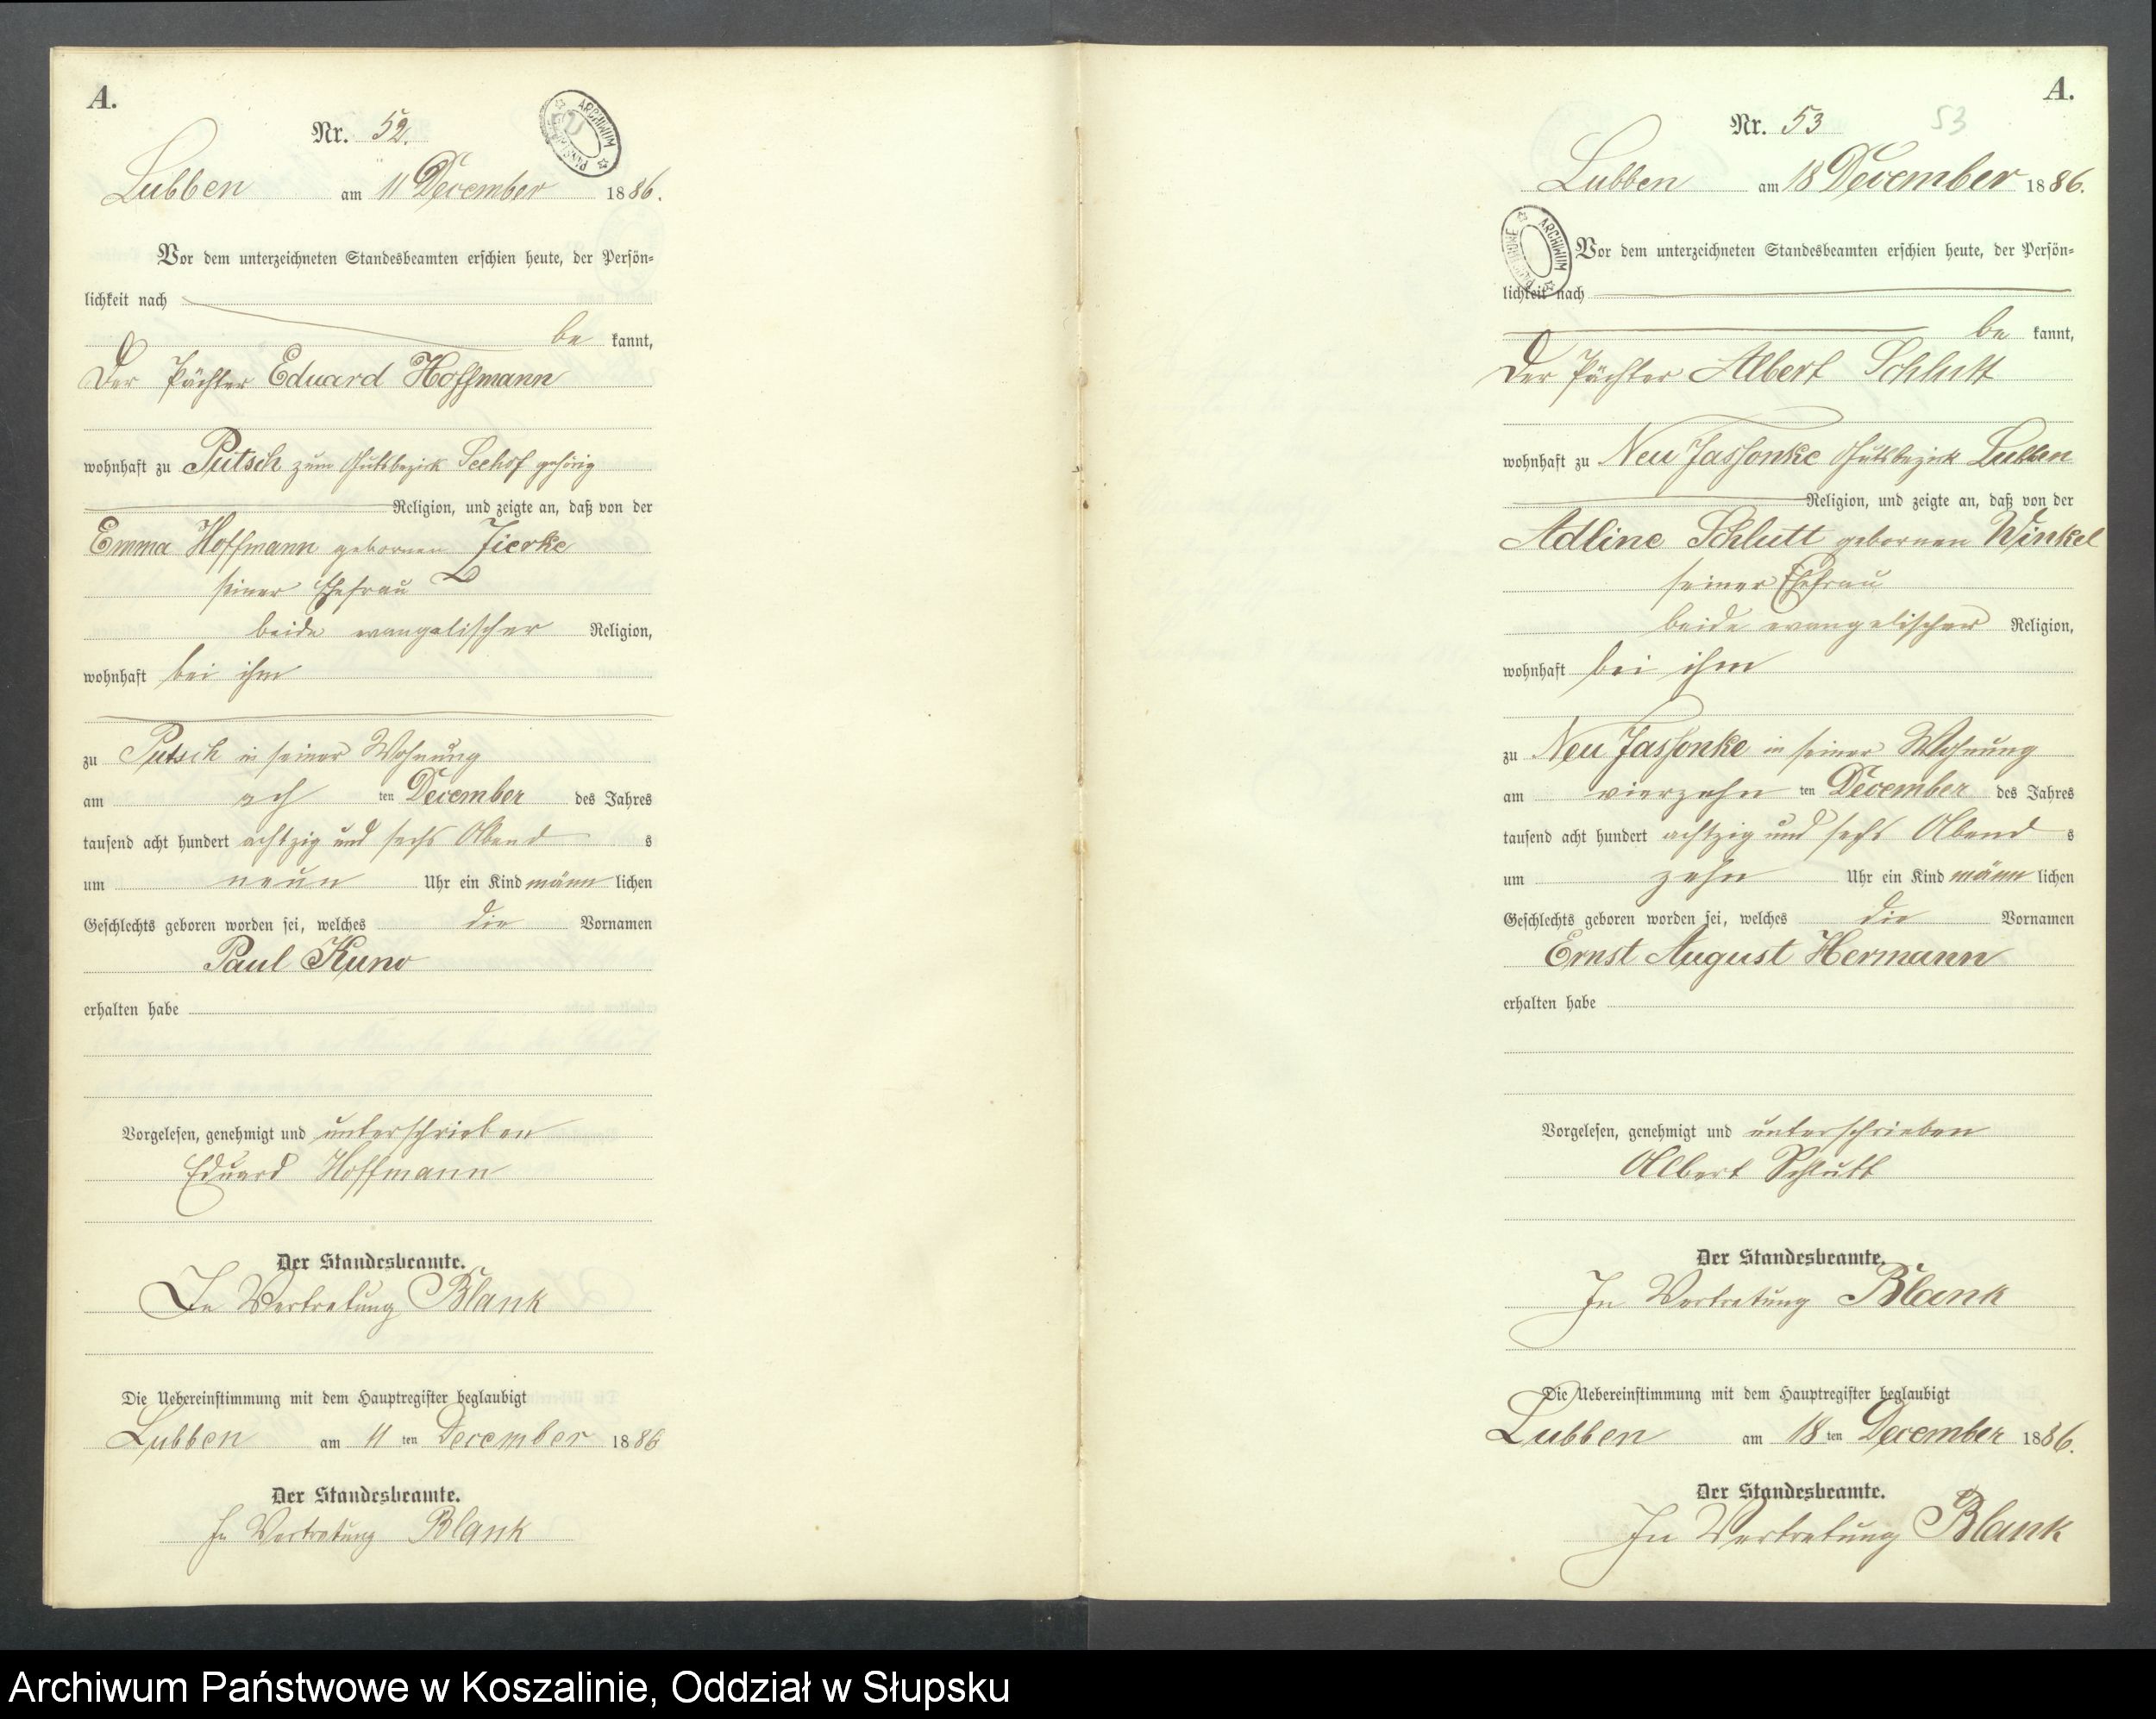 A.
Nr. 52.
ARCHIWUM
Lubben am 11 December 1886.
Vor dem unterzeichneten Standesbeamten erschien heute, der Persön-
lichkeit nach
be kannt,
Der Pächter Eduard Hoffmann
wohnhaft zu Pütsch zum Gutsbezirk Seehof gehörig
Religion, und zeigte an, daß von der
Emma Hoffmann gebornen Zierke
seiner Ehefrau
beide evangelischer Religion,
wohnhaft bei ihm
zu Putsch in seiner Wohnung
am ach ten December des Jahres
tausend acht hundert achtzig und sechs Abend s
um neun Uhr ein Kind männ lichen
Geschlechts geboren worden sei, welches die Vornamen
Paul Kuno
erhalten habe
Vorgelesen, genehmigt und unterschrieben
Eduard Hoffmann
Der Standesbeamte.
In Vertretung Blank
Die Uebereinstimmung mit dem Hauptregister beglaubigt
Lubben am 11 ten December 1886
Der Standesbeamte.
In Vertretung Blank
A.
Nr. 53 53
Lubben am 18 December 1886.
ARCHIWUM
Vor dem unterzeichneten Standesbeamten erschien heute, der Persön-
lichkeit nach
be kannt,
Der Pächter Albert Schlutt
wohnhaft zu Neu Jassonke Gutsbezirk Lubben
Religion, und zeigte an, daß von der
Adline Schlutt gebornen Winkel
seiner Ehefrau
beide evangelischer Religion,
wohnhaft bei ihm
zu Neu Jassonke in seiner Wohnung
am vierzehn ten December des Jahres
tausend acht hundert achtzig und sechs Abend s
um zehn Uhr ein Kind männ lichen
Geschlechts geboren worden sei, welches die Vornamen
Ernst August Hermann
erhalten habe
Vorgelesen, genehmigt und unterschrieben
Albert Schlutt
Der Standesbeamte.
In Vertretung Blank
Die Uebereinstimmung mit dem Hauptregister beglaubigt
Lubben am 18 ten December 1886.
Der Standesbeamte.
In Vertretung Blank
Archiwum Państwowe w Koszalinie, Oddział w Słupsku